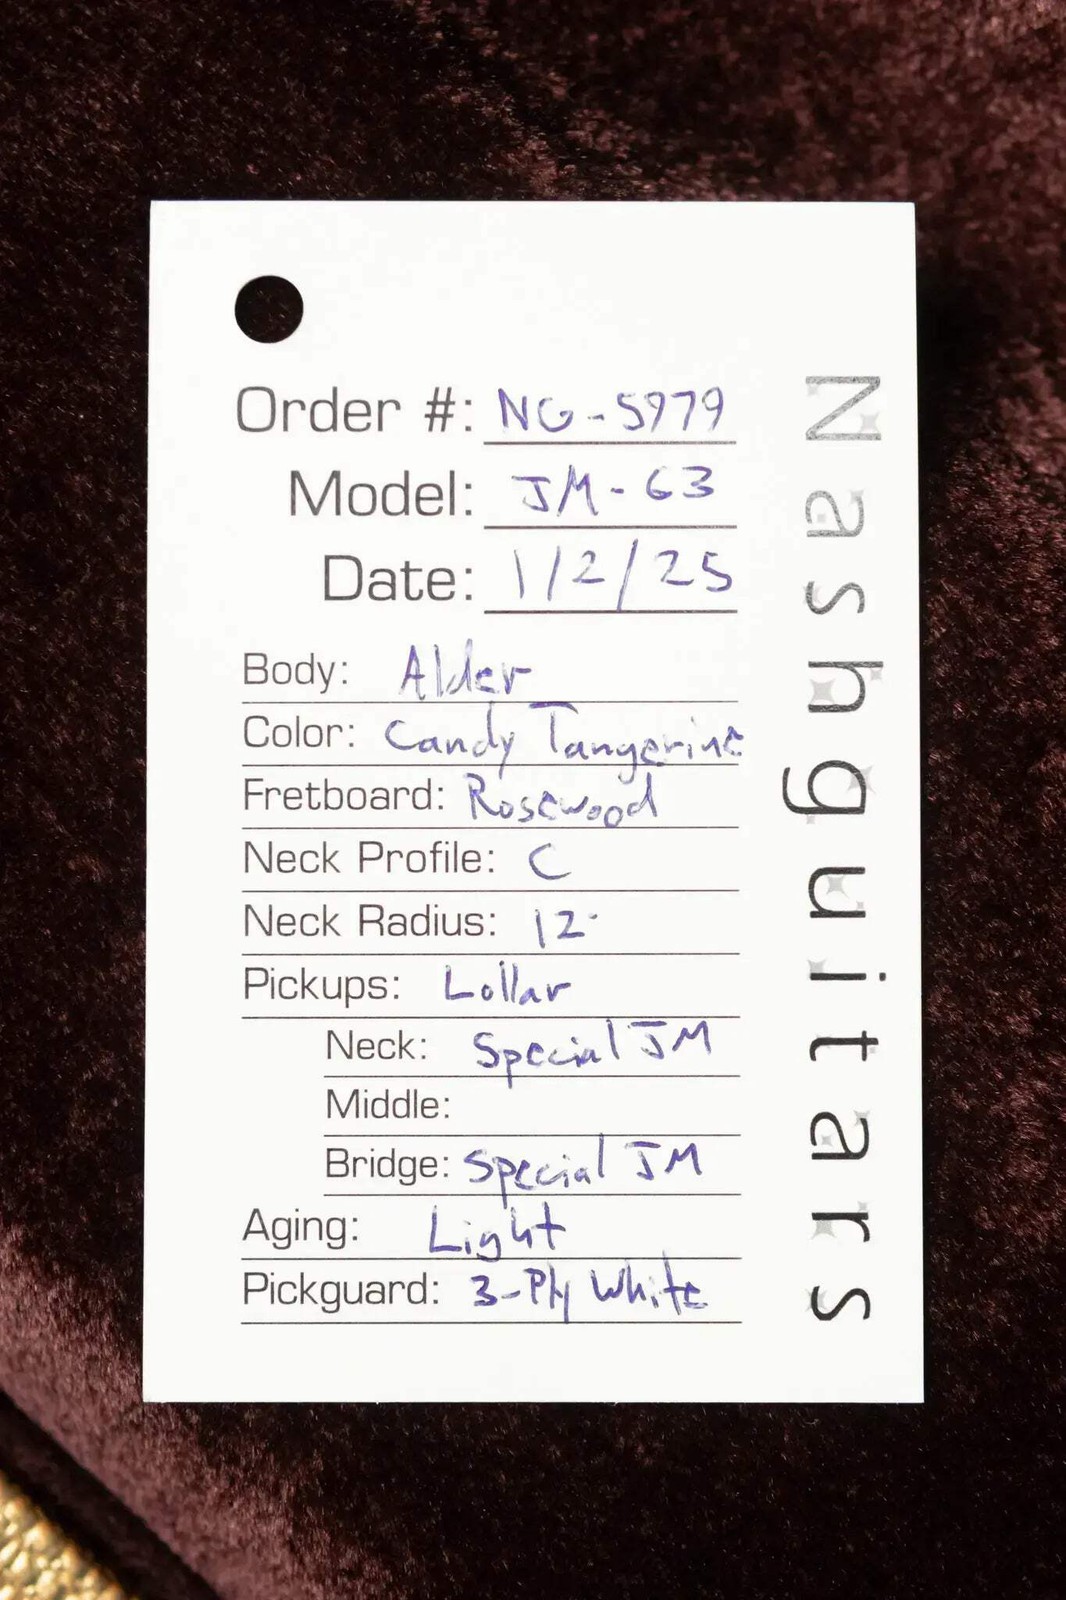 Order #: NG-5979
Model: JM-63
Date: 1/2/25
Body: Alder
Color: Candy Tangerine
Fretboard: Rosewood
Neck Profile: C
Neck Radius: 12"
Pickups: Lollar
Neck: Special JM
Middle:
Bridge: Special JM
Aging: Light
Pickguard: 3-Ply White
Nashguitars